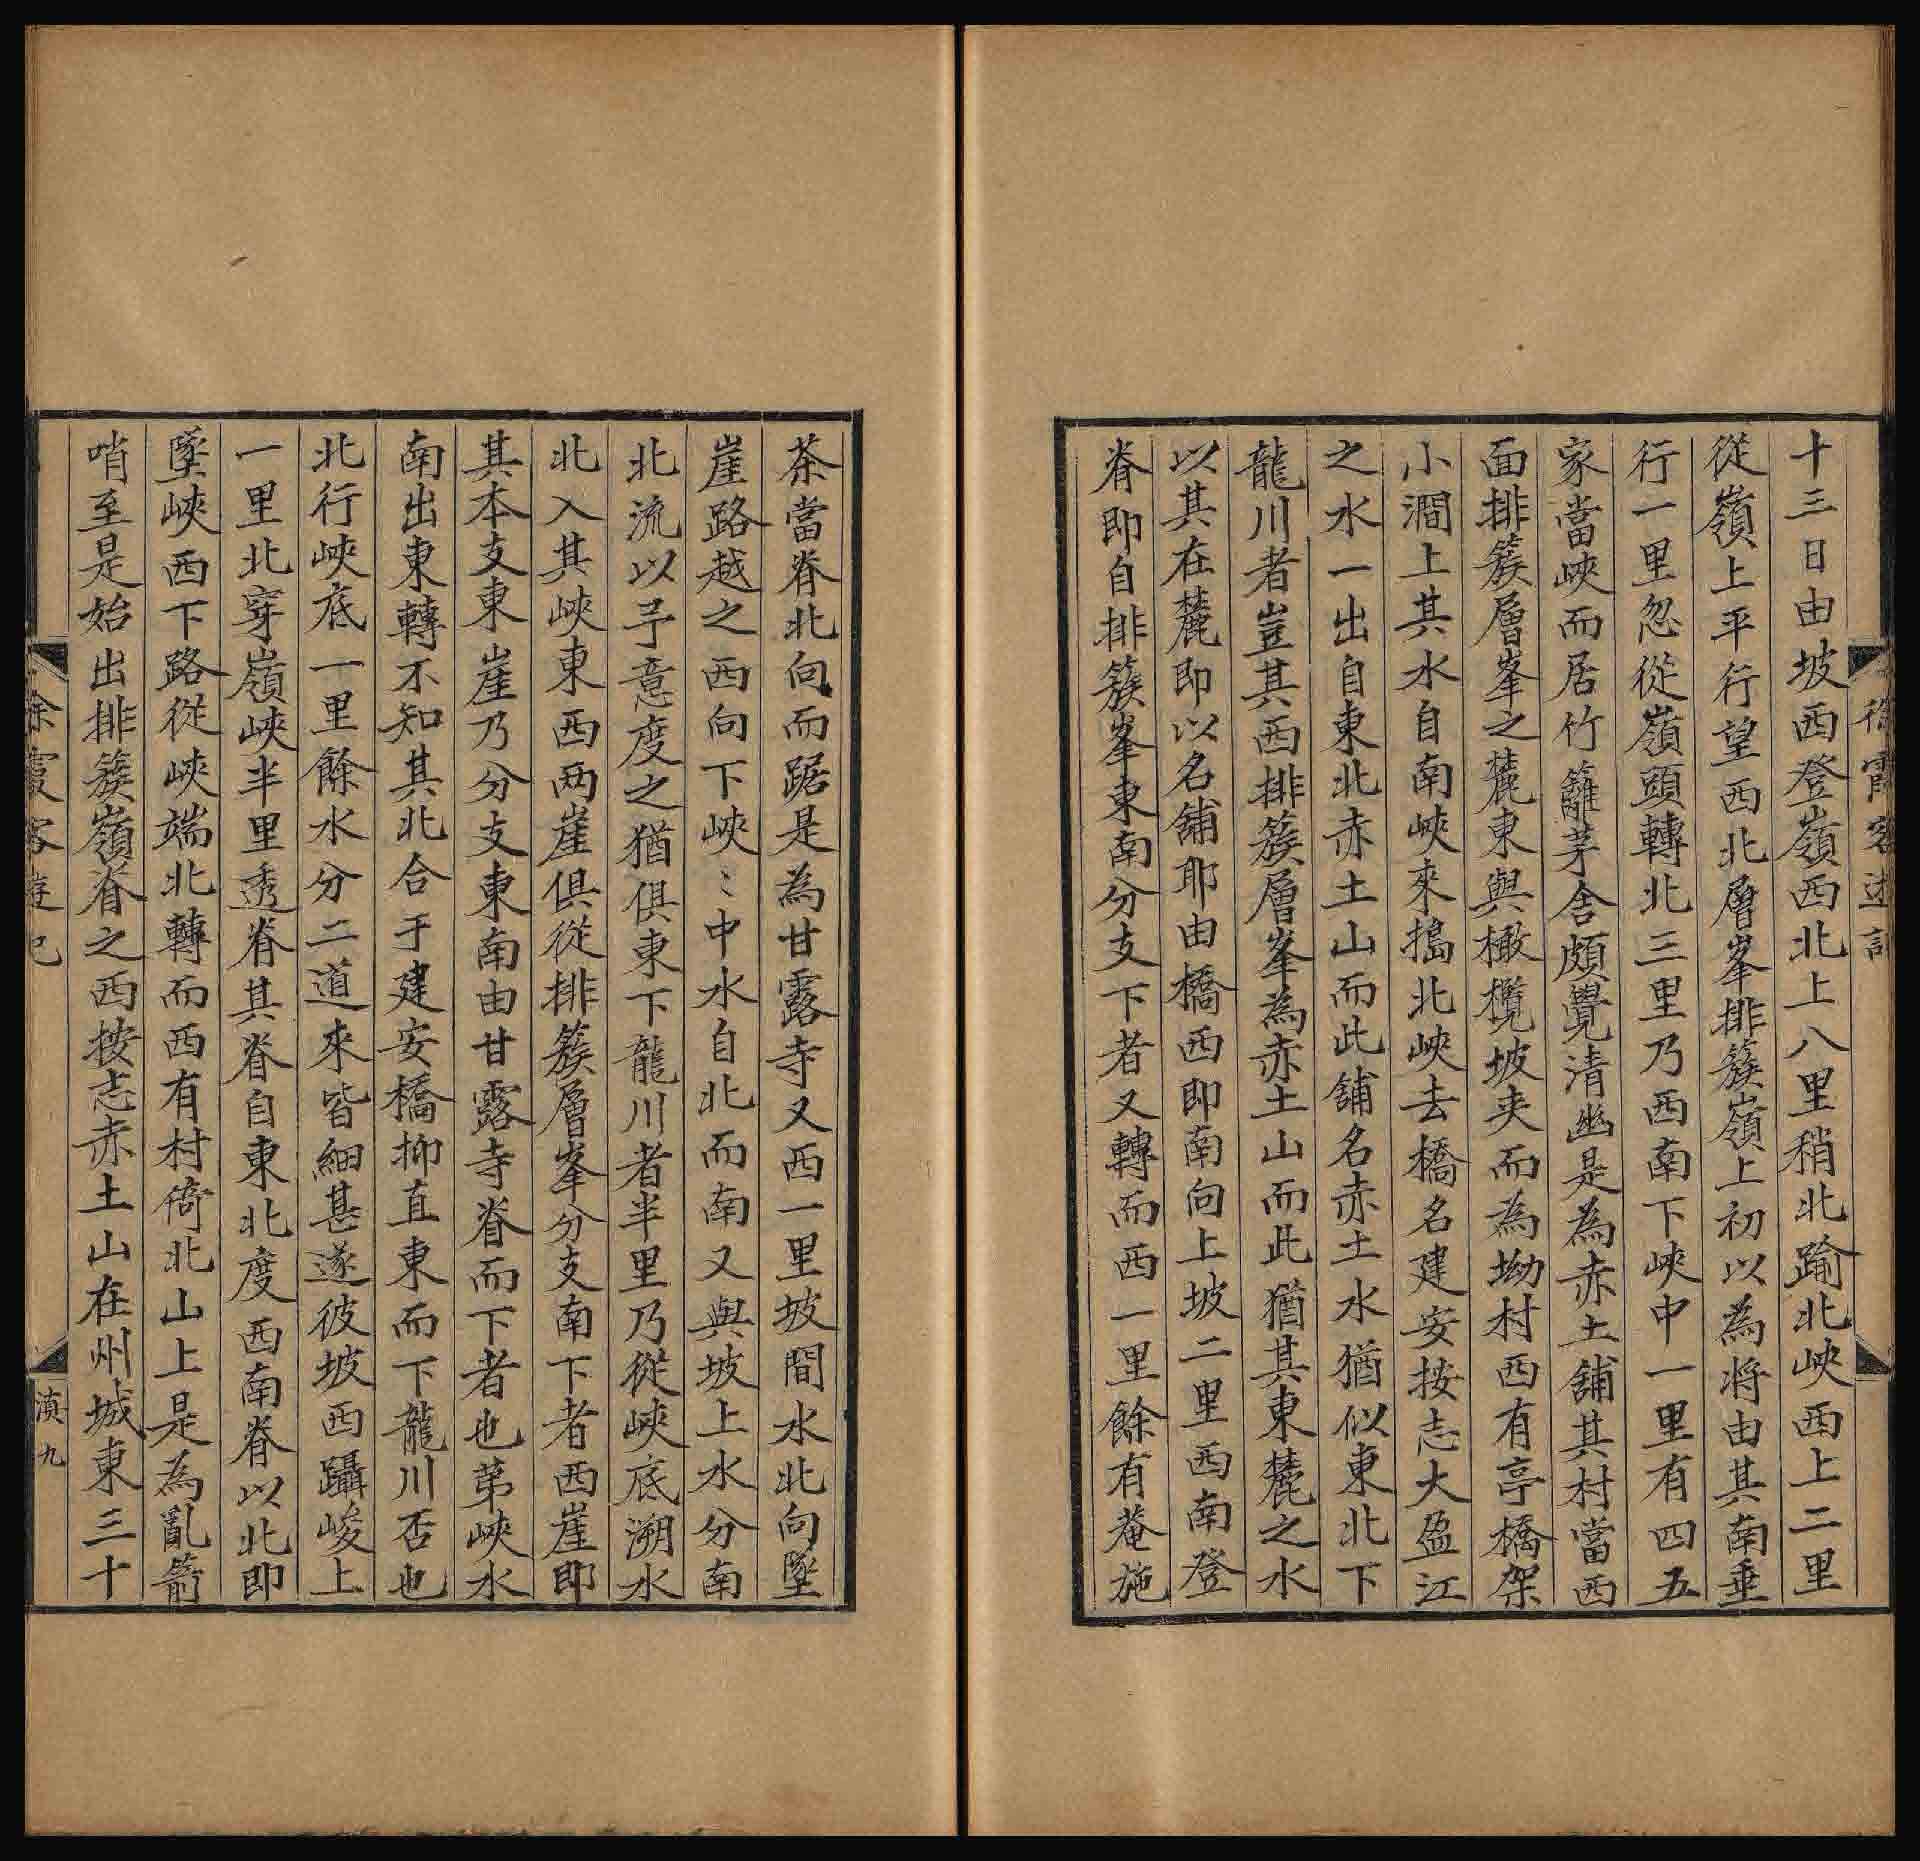 十三日由坡西登嶺西北上八里稍北踰北峽西上二里
從嶺上平行望西北層峯排簇嶺上初以為將由其南垂
行一里忽從嶺頭轉北三里乃西南下峽中一里有四五
家當峽而居竹籬茅舍頗覺清幽是為赤土舖其村當西
面排簇層峯之麓東與橄欖坡夹而為坳村西有亭橋架
小澗上其水自南峽來搗北峽去橋名建安按志大盈江
之水一出自東北赤土山而此舖名赤土水猶似東北下
龍川者豈其西排簇層峯為赤土山而此猶其東麓之水
以其在麓即以名舖耶由橋西即南向上坡二里西南登
脊即自排簇峯東南分支下者又轉而西一里餘有菴施
茶當脊北向而踞是為甘露寺又西一里坡間水北向墜
崖路越之西向下峽〻中水自北而南又與坡上水分南
北流以予意度之猶俱東下龍川者半里乃從峽底溯水
北入其峽東西两崖俱從排簇層峯分支南下者西崖即
其本支東崖乃分支東南由甘露寺脊而下者也第峽水
南出東轉不知其北合于建安橋抑直東而下龍川否也
北行峽底一里餘水分二道來皆細甚遂彼坡西躡峻上
一里北穿嶺峽半里透脊其脊自東北度西南脊以北即
墜峽西下路從峽端北轉而西有村倚北山上是為亂箭
哨至是始出排簇嶺脊之西按志赤土山在州城東三十
徐霞客遊記
滇九